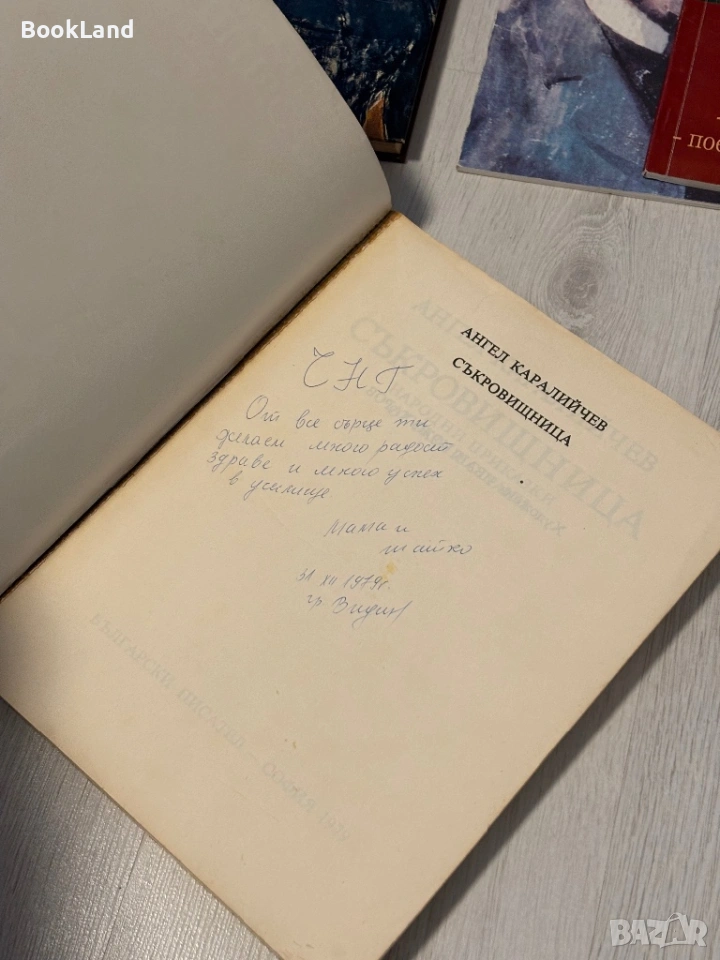 BookLand
пое
АНГЕЛ КАРАЛИЙЧЕВ
СЪКРОВИЩНИЦА
ЧНГ
От все сърце ти
желаем много радост
здраве и много успех
в училище
Мама и
татко
31 XII 1979г.
гр Видин
СЪКРОВИЩНИЦА
БЪЛГАРСКИ ПИСАТЕЛ — СОФИЯ 1979
BAZAR